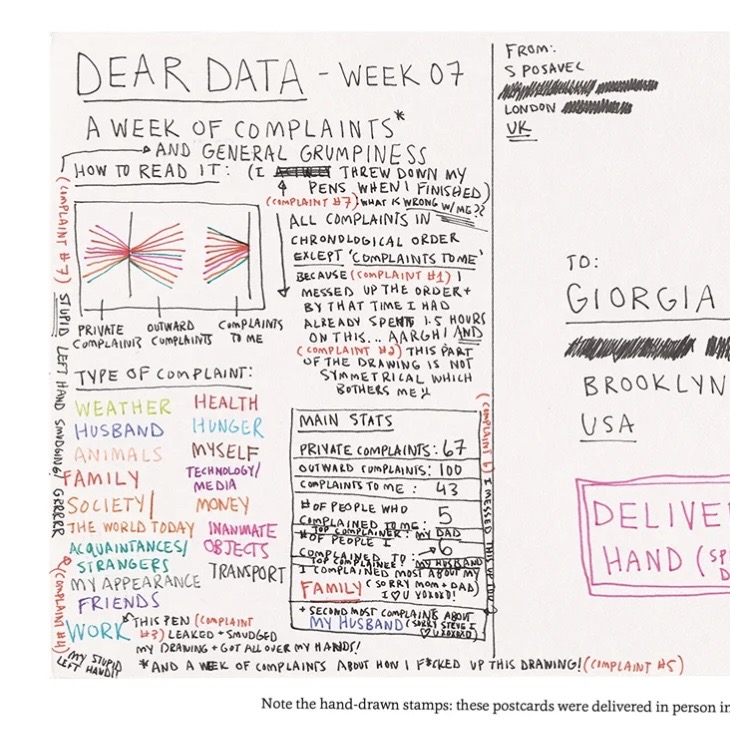 DEAR DATA - WEEK 07
A WEEK OF COMPLAINTS*
AND GENERAL GRUMPINESS
HOW TO READ IT: (I THREW DOWN MY
PENS WHEN I FINISHED)
(COMPLAINT #7) WHAT IS WRONG W/ME??
ALL COMPLAINTS IN
CHRONOLOGICAL ORDER
EXCEPT 'COMPLAINTS TO ME'
BECAUSE (COMPLAINT #1) I
MESSED UP THE ORDER +
BY THAT TIME I HAD
ALREADY SPENT 1.5 HOURS
ON THIS... AARGH! AND
(COMPLAINT #2) THIS PART
OF THE DRAWING IS NOT
SYMMETRICAL WHICH
BOTHERS ME
PRIVATE COMPLAINTS
OUTWARD COMPLAINTS
COMPLAINTS TO ME
(COMPLAINT #7)
STUPID LEFT HAND SMUDGING! GRRRRR
TYPE OF COMPLAINT:
WEATHER
HUSBAND
ANIMALS
FAMILY
SOCIETY/
THE WORLD TODAY
ACQUAINTANCES/
STRANGERS
MY APPEARANCE
FRIENDS
WORK
HEALTH
HUNGER
MYSELF
TECHNOLOGY/
MEDIA
MONEY
INANIMATE
OBJECTS
TRANSPORT
MAIN STATS
PRIVATE COMPLAINTS: 67
OUTWARD COMPLAINTS: 100
COMPLAINTS TO ME: 43
# OF PEOPLE WHO
COMPLAINED TO ME: 5
TOP COMPLAINER: MY DAD
# OF PEOPLE I
COMPLAINED TO: 6
TOP COMPLAINEE: MY HUSBAND
I COMPLAINED MOST ABOUT MY
FAMILY (SORRY MOM + DAD)
I ♡ U XOXOXO!
+ SECOND MOST COMPLAINTS ABOUT
MY HUSBAND (SORRY STEVE I
♡ U XOXOXO)
(COMPLAINT 6) I MESSED THIS UP
THIS PEN (COMPLAINT
#3) LEAKED + SMUDGED
MY DRAWING + GOT ALL OVER MY HANDS!
(COMPLAINT #4)
MY STUPID
LEFT HAND!!
*AND A WEEK OF COMPLAINTS ABOUT HOW I F*CKED UP THIS DRAWING! (COMPLAINT #5)
FROM:
S POSAVEC
LONDON
UK
TO:
GIORGIA
BROOKLYN
USA
DELIVE
HAND (SP
Note the hand-drawn stamps: these postcards were delivered in person in